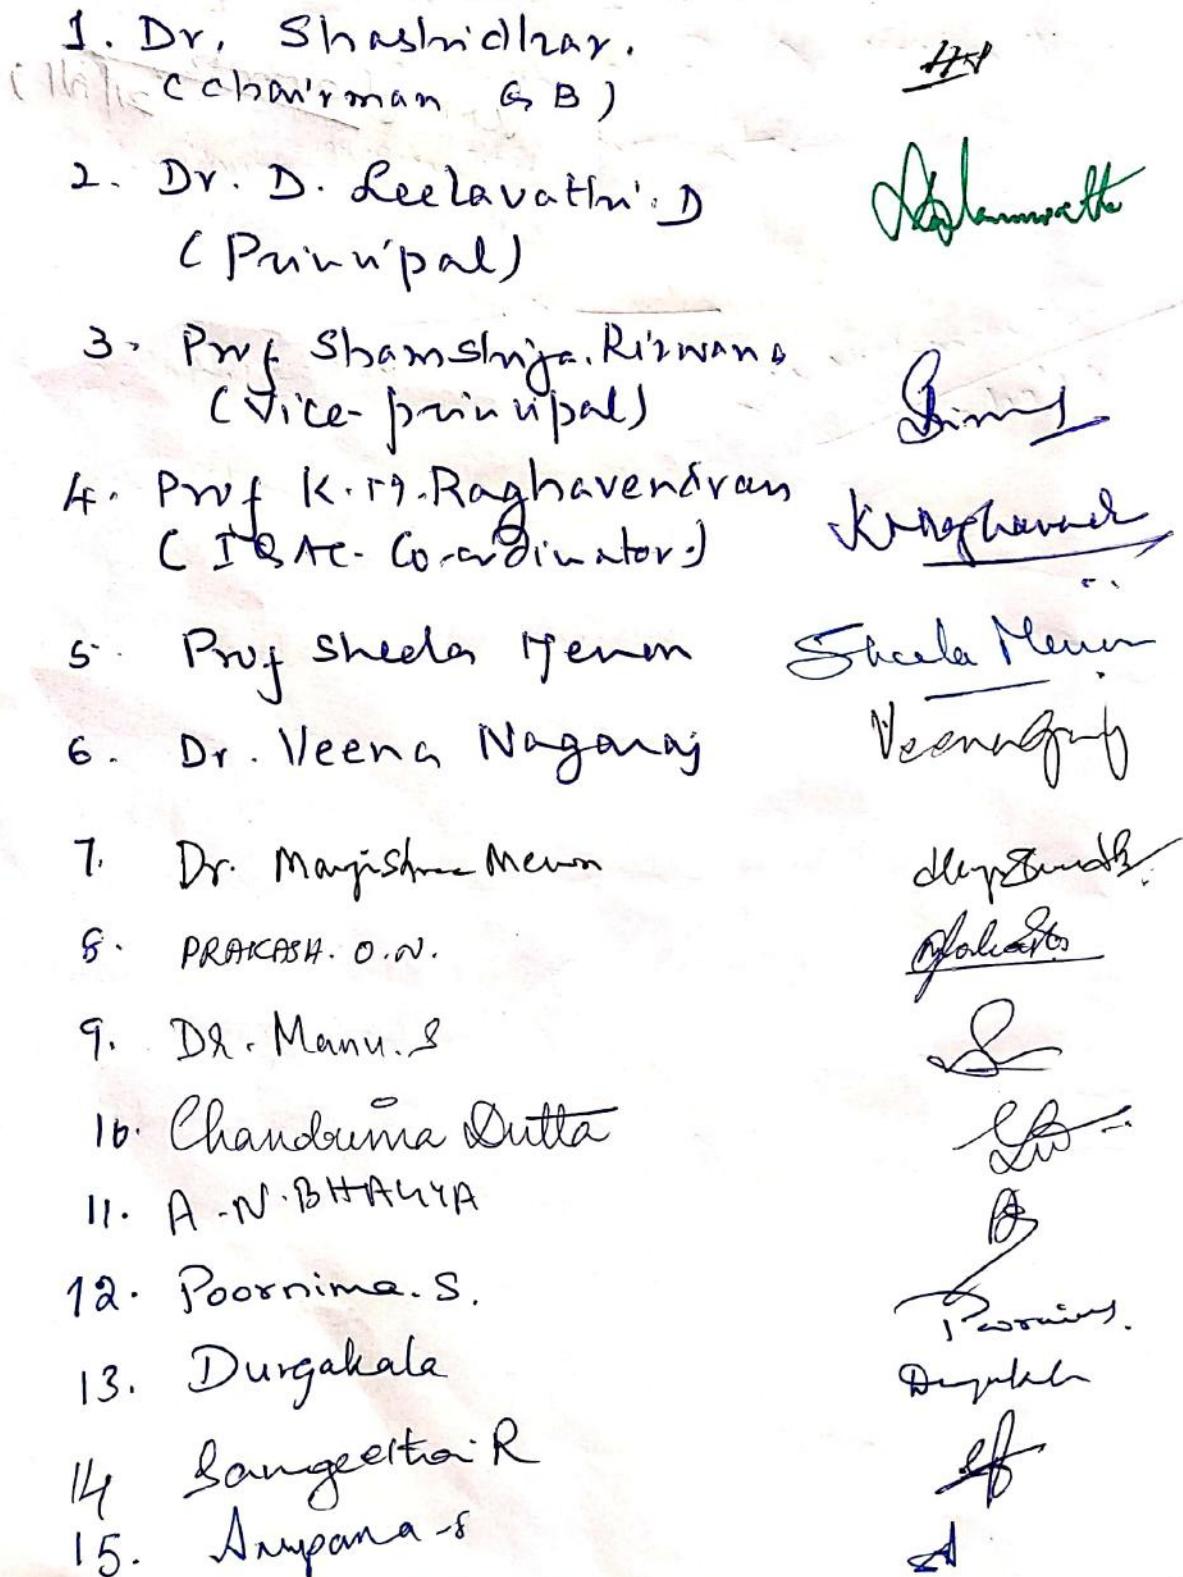 1. Dr. Shashidhar.
(Chairman GB)
2. Dr. D. Leelavathi. D
(Principal)
3. Prof Shamshija. Rizwana
(Vice-principal)
4. Prof K.M. Raghavendran
(IQAC- Co-ordinator.)
5. Prof Sheela Menon Sheela Menon
6. Dr. Veena Nagaraj
7. Dr. Manjishree Menon
8. PRAKASH. O.N.
9. DR. Manu. S
10. Chandrima Dutta
11. A.N. BHAGYA
12. Poornima. S. Poornima.
13. Durgakala Durgakala
14 Sangeetha R
15. Anupama-s